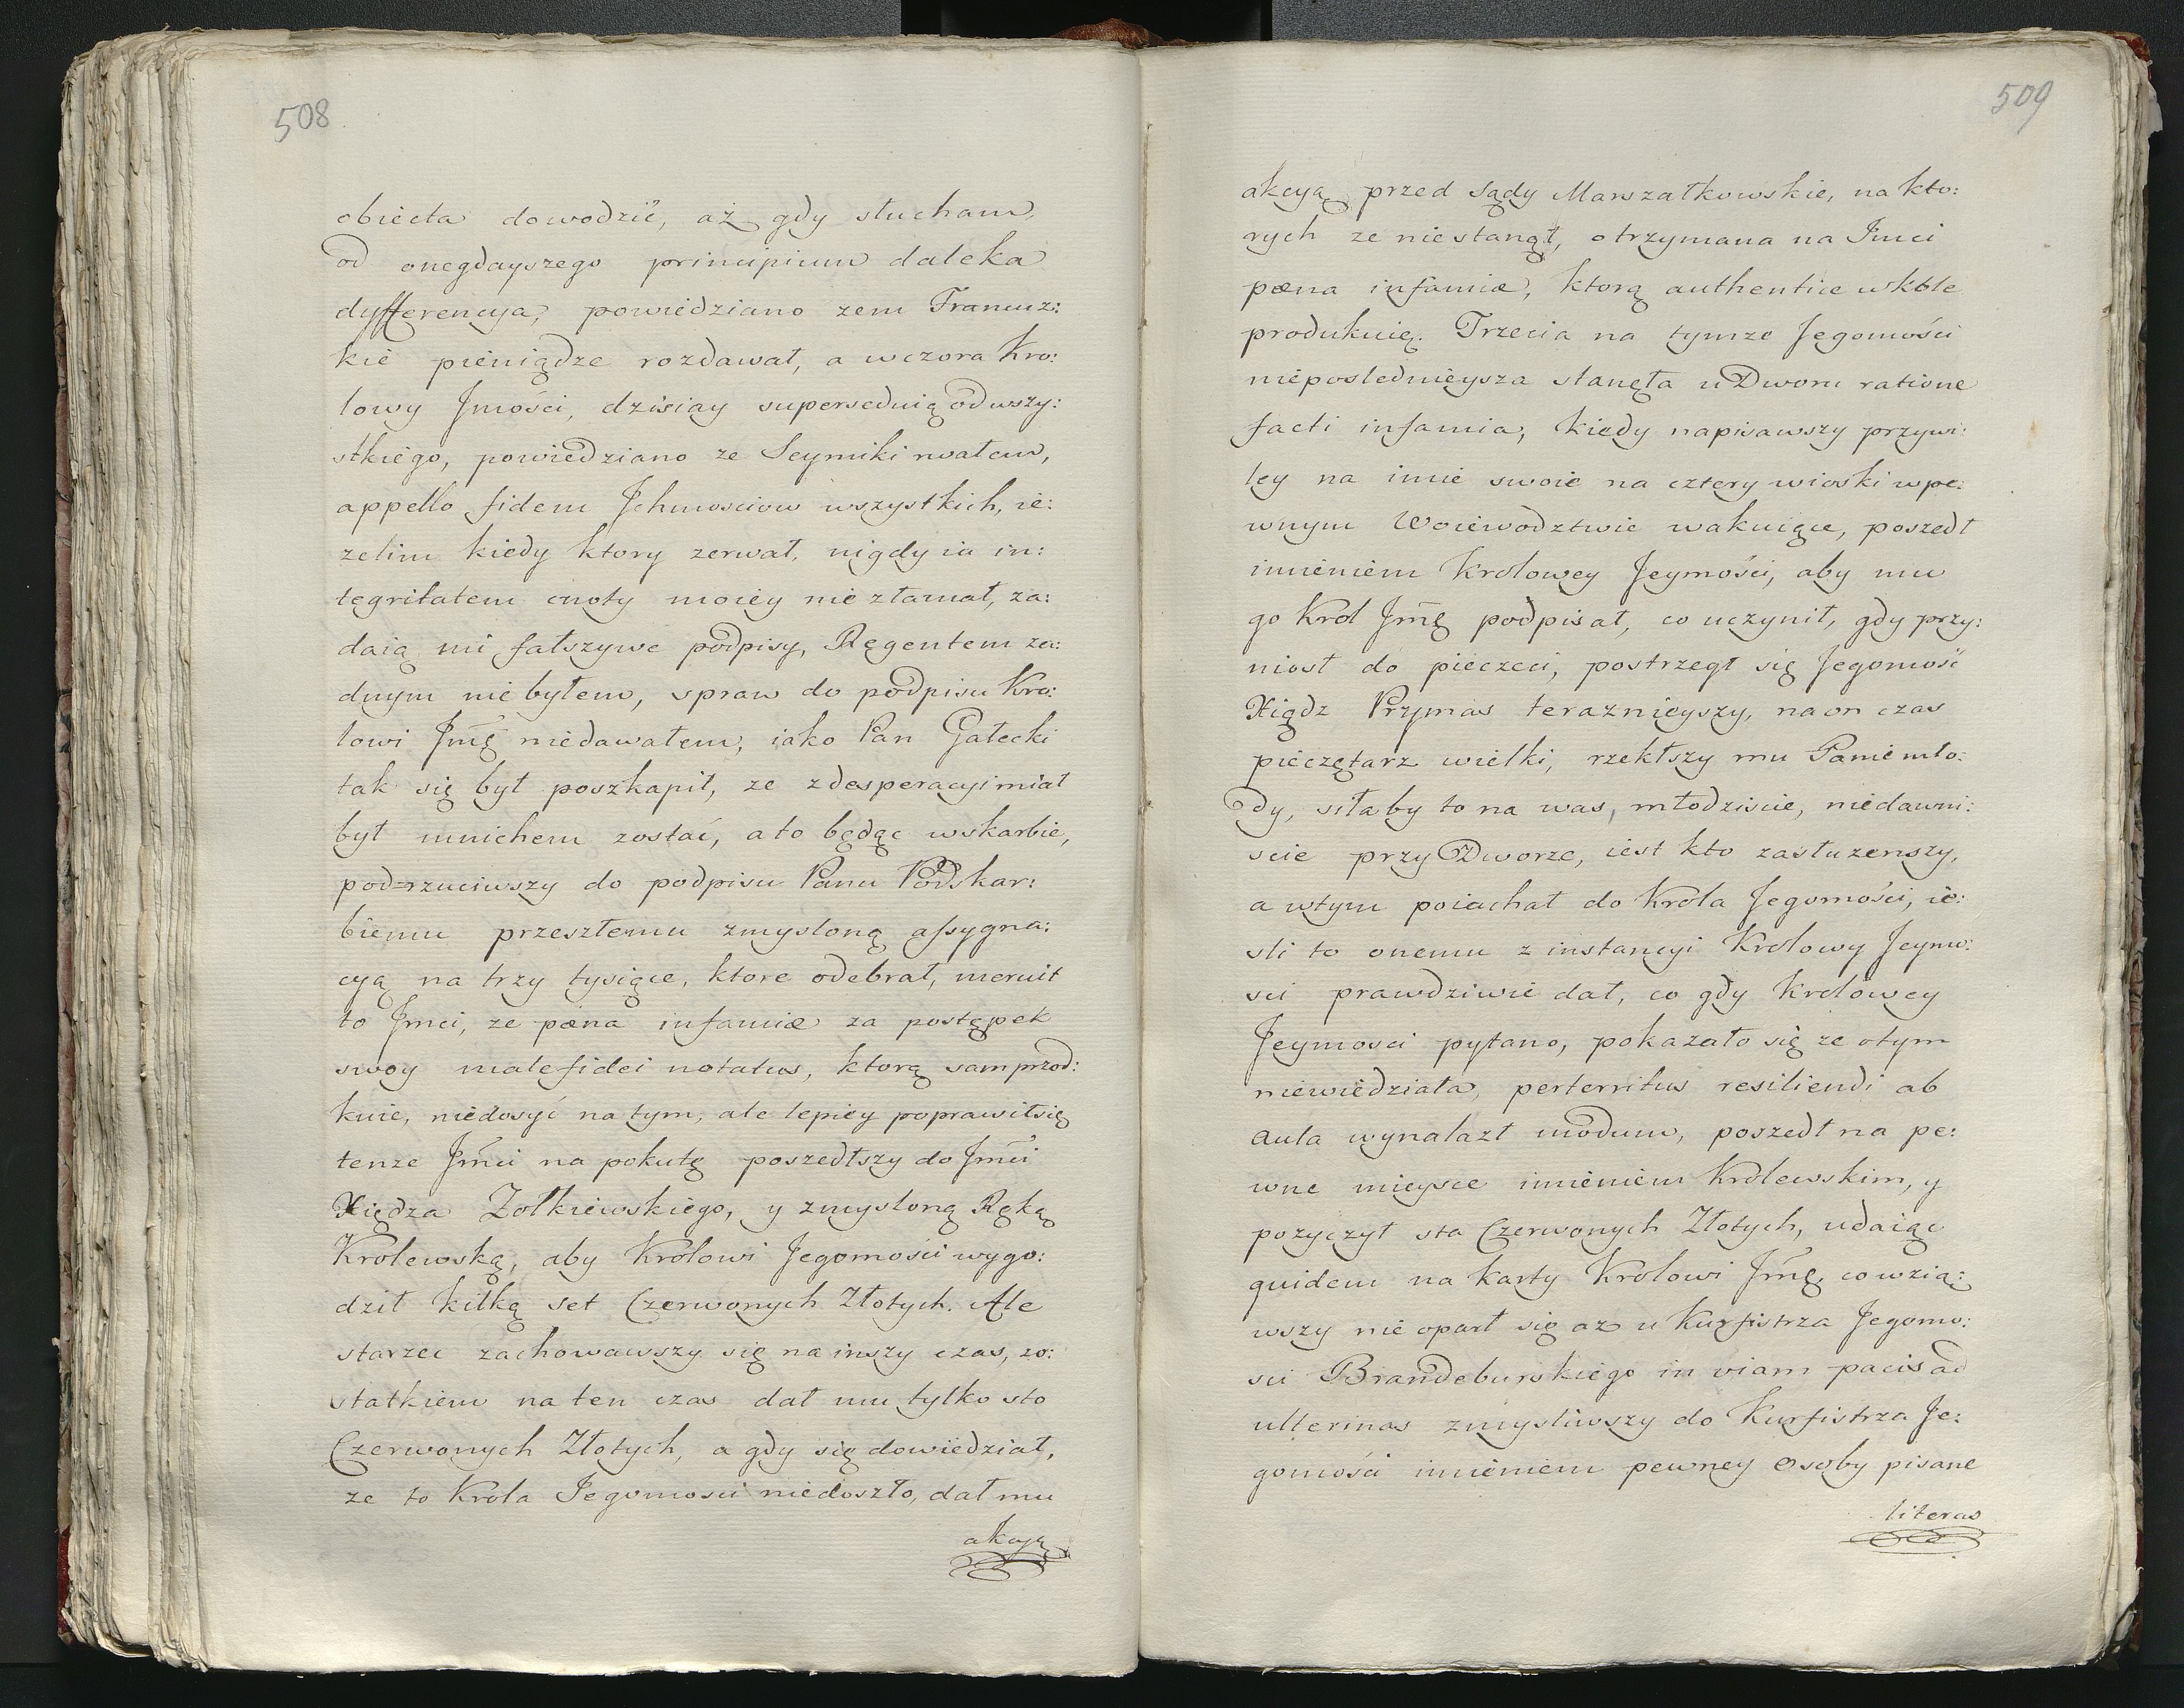 508
obiecta dowodzić, aż gdy słucham,
od onegdayszego principium daleka
dyfferencya, powiedziano zem Francuz:
kie pieniądze rozdawał, a wczora Kro:
lowy Jmości, dzisiay supersedują od wszy:
stkiego, powiedziano ze Seymiki rwałem,
appello fidem Jchmosciow wszystkich, ie:
zelim kiedy ktory zerwał, nigdy ia in:
tegritatem cnoty moiey nie złamał, za:
daią mi fałszywe podpisy, Regentem ża:
dnym nie byłem, spraw do podpisu Kro:
lowi Jmę niedawałem, iako Pan Gałecki
tak się był poszkapił, ze z desperacyi miał
był mnichem zostać, a to będąc w skarbie,
podrzuciwszy do podpisu Panu Podskar:
biemu przeszłemu zmysloną assygna:
cyą na trzy tysiące, ktore odebrał, meruit
to Jmci, ze pœna infamiæ za postępek
swoy malefidei notatus, ktorą sam prod:
kuie, niedosyć na tym, ale lepiey poprawił się
tenze Jmći na pokutę poszedłszy do Jmći
Xiędza Zołkiewskiego, y zmysloną Ręką
Krolewską, aby Krolowi Jegomości wygo:
dził kilką set Czerwonych Złotych. Ale
starzec zachowawszy się na inszy czas, zo:
statkiem na ten czas dał mu tylko sto
Czerwonych Złotych, a gdy się dowiedział,
ze to Krola Jegomosci niedoszło, dał mu
akcyą
509
akcyą przed sądy Marszałkowskie, na kto:
rych ze niestanął, otrzymana na Jmci
pœna infamiæ, ktorą authentice w kole
produkuię. Trzecia na tymze Jegomości
nieposlednieysza stanęła u Dworu ratione
facti infamia, kiedy napisawszy przywi:
ley na imie swoie na cztery wioski w pe:
wnym Woiewodztwie wakuiące, poszedł
imieniem Krolowey Jeymości, aby mu
go Krol Jmę podpisał, co uczynił, gdy przy:
niosł do pieczeci, postrzegł się Jegomość
Xiądz Prymas teraznieyszy, na on czas
pieczętarz wielki, rzekłszy mu Panie mło:
dy, siła by to na was, młodziscie, niedawni:
scie przy Dworze, iest kto zasłuzenszy,
a wtym poiachał do Krola Jegomości, ie:
sli to onemu z instancyi Krolowy Jeymo:
sci prawdziwie dał, co gdy Krolowey
Jeymosci pytano, pokazało się ze o tym
niewiedziała, perterritus resiliendi ab
aula wynalazł modum, poszedł na pe:
wne mieysce imieniem Krolewskim, y
pozyczył sta Czerwonych Złotych, udaiąc
quidem na karty Krolowi Jmę, co wzią:
wszy nie oparł się az u Kurfistrza Jegomo:
sci Brandeburskiego in viam pacis ad
ulterinas zmysliwszy do Kurfistrza Je:
gomości imieniem pewney osoby pisane
literas